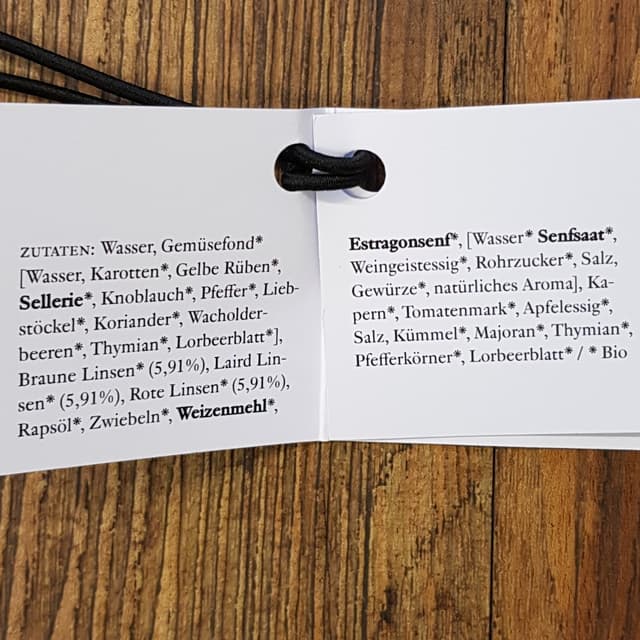 ZUTATEN: Wasser, Gemüsefond*
[Wasser, Karotten*, Gelbe Rüben*,
Sellerie*, Knoblauch*, Pfeffer*, Lieb-
stöckel*, Koriander*, Wacholder-
beeren*, Thymian*, Lorbeerblatt*],
Braune Linsen* (5,91%), Laird Lin-
sen* (5,91%), Rote Linsen* (5,91%),
Rapsöl*, Zwiebeln*, Weizenmehl*,
Estragonsenf*, [Wasser* Senfsaat*,
Weingeistessig*, Rohrzucker*, Salz,
Gewürze*, natürliches Aroma], Ka-
pern*, Tomatenmark*, Apfelessig*,
Salz, Kümmel*, Majoran*, Thymian*,
Pfefferkörner*, Lorbeerblatt* / * Bio